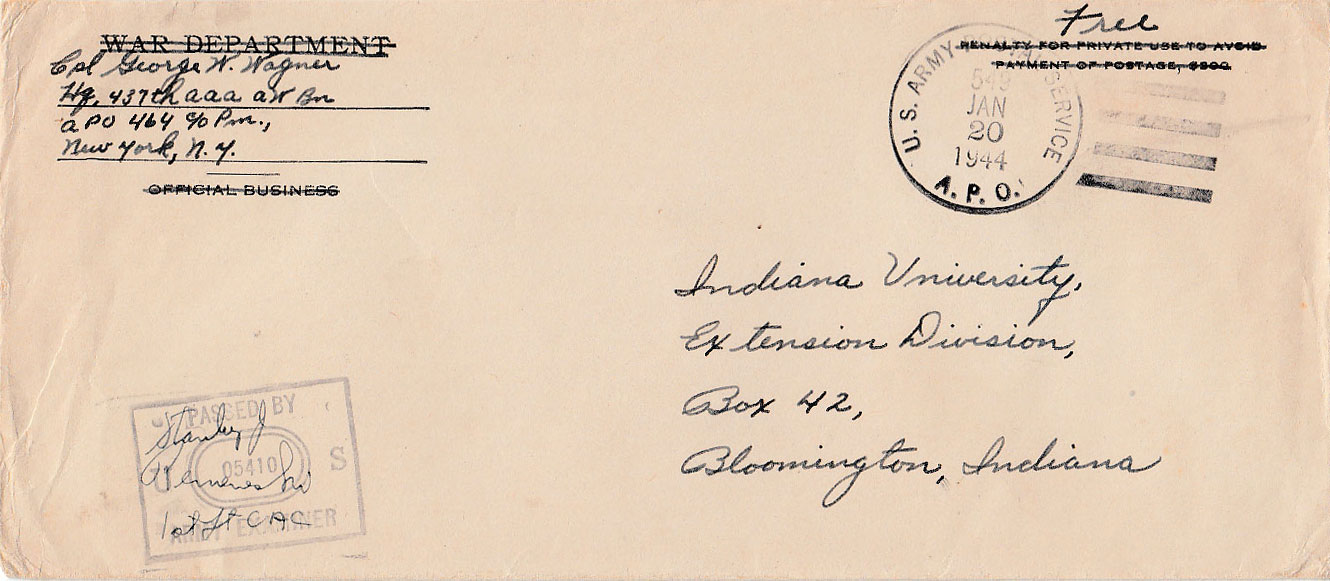 WAR DEPARTMENT
Cpl George W. Wagner
Hq. 437th aaa aW Bn
aPO 464 c/o Pm.,
New York, N.Y.
OFFICIAL BUSINESS
Free
PENALTY FOR PRIVATE USE TO AVOID
PAYMENT OF POSTAGE, $300
U. S. ARMY POSTAL SERVICE
543
JAN
20
1944
A. P. O.
Indiana University,
Extension Division,
Box 42,
Bloomington, Indiana
PASSED BY
Stanley J
U S
05410
1st Lt CAC
ARMY EXAMINER